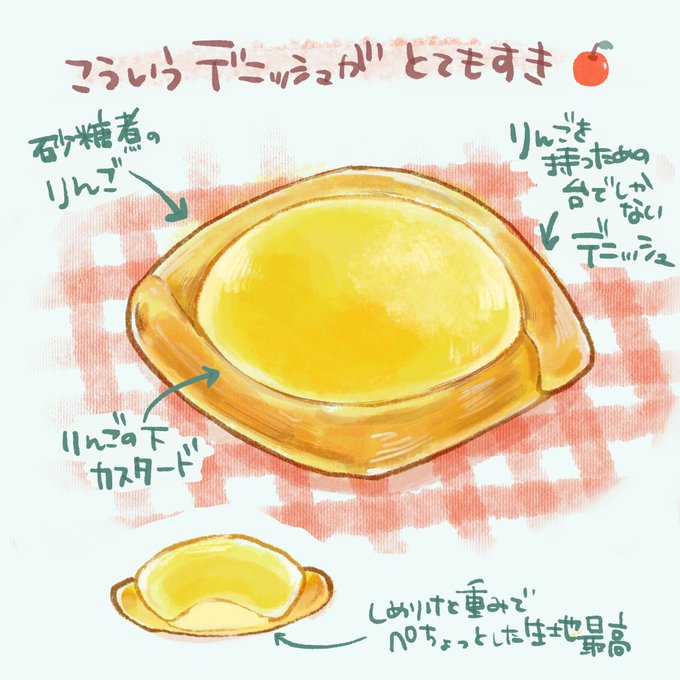 こういうデニッシュがとてもすき
砂糖煮の
りんご
りんごを
持つための
台でしか
ない
デニッシュ
りんごの下
カスタード
しめりけと重みで
ペちょっとした生地最高